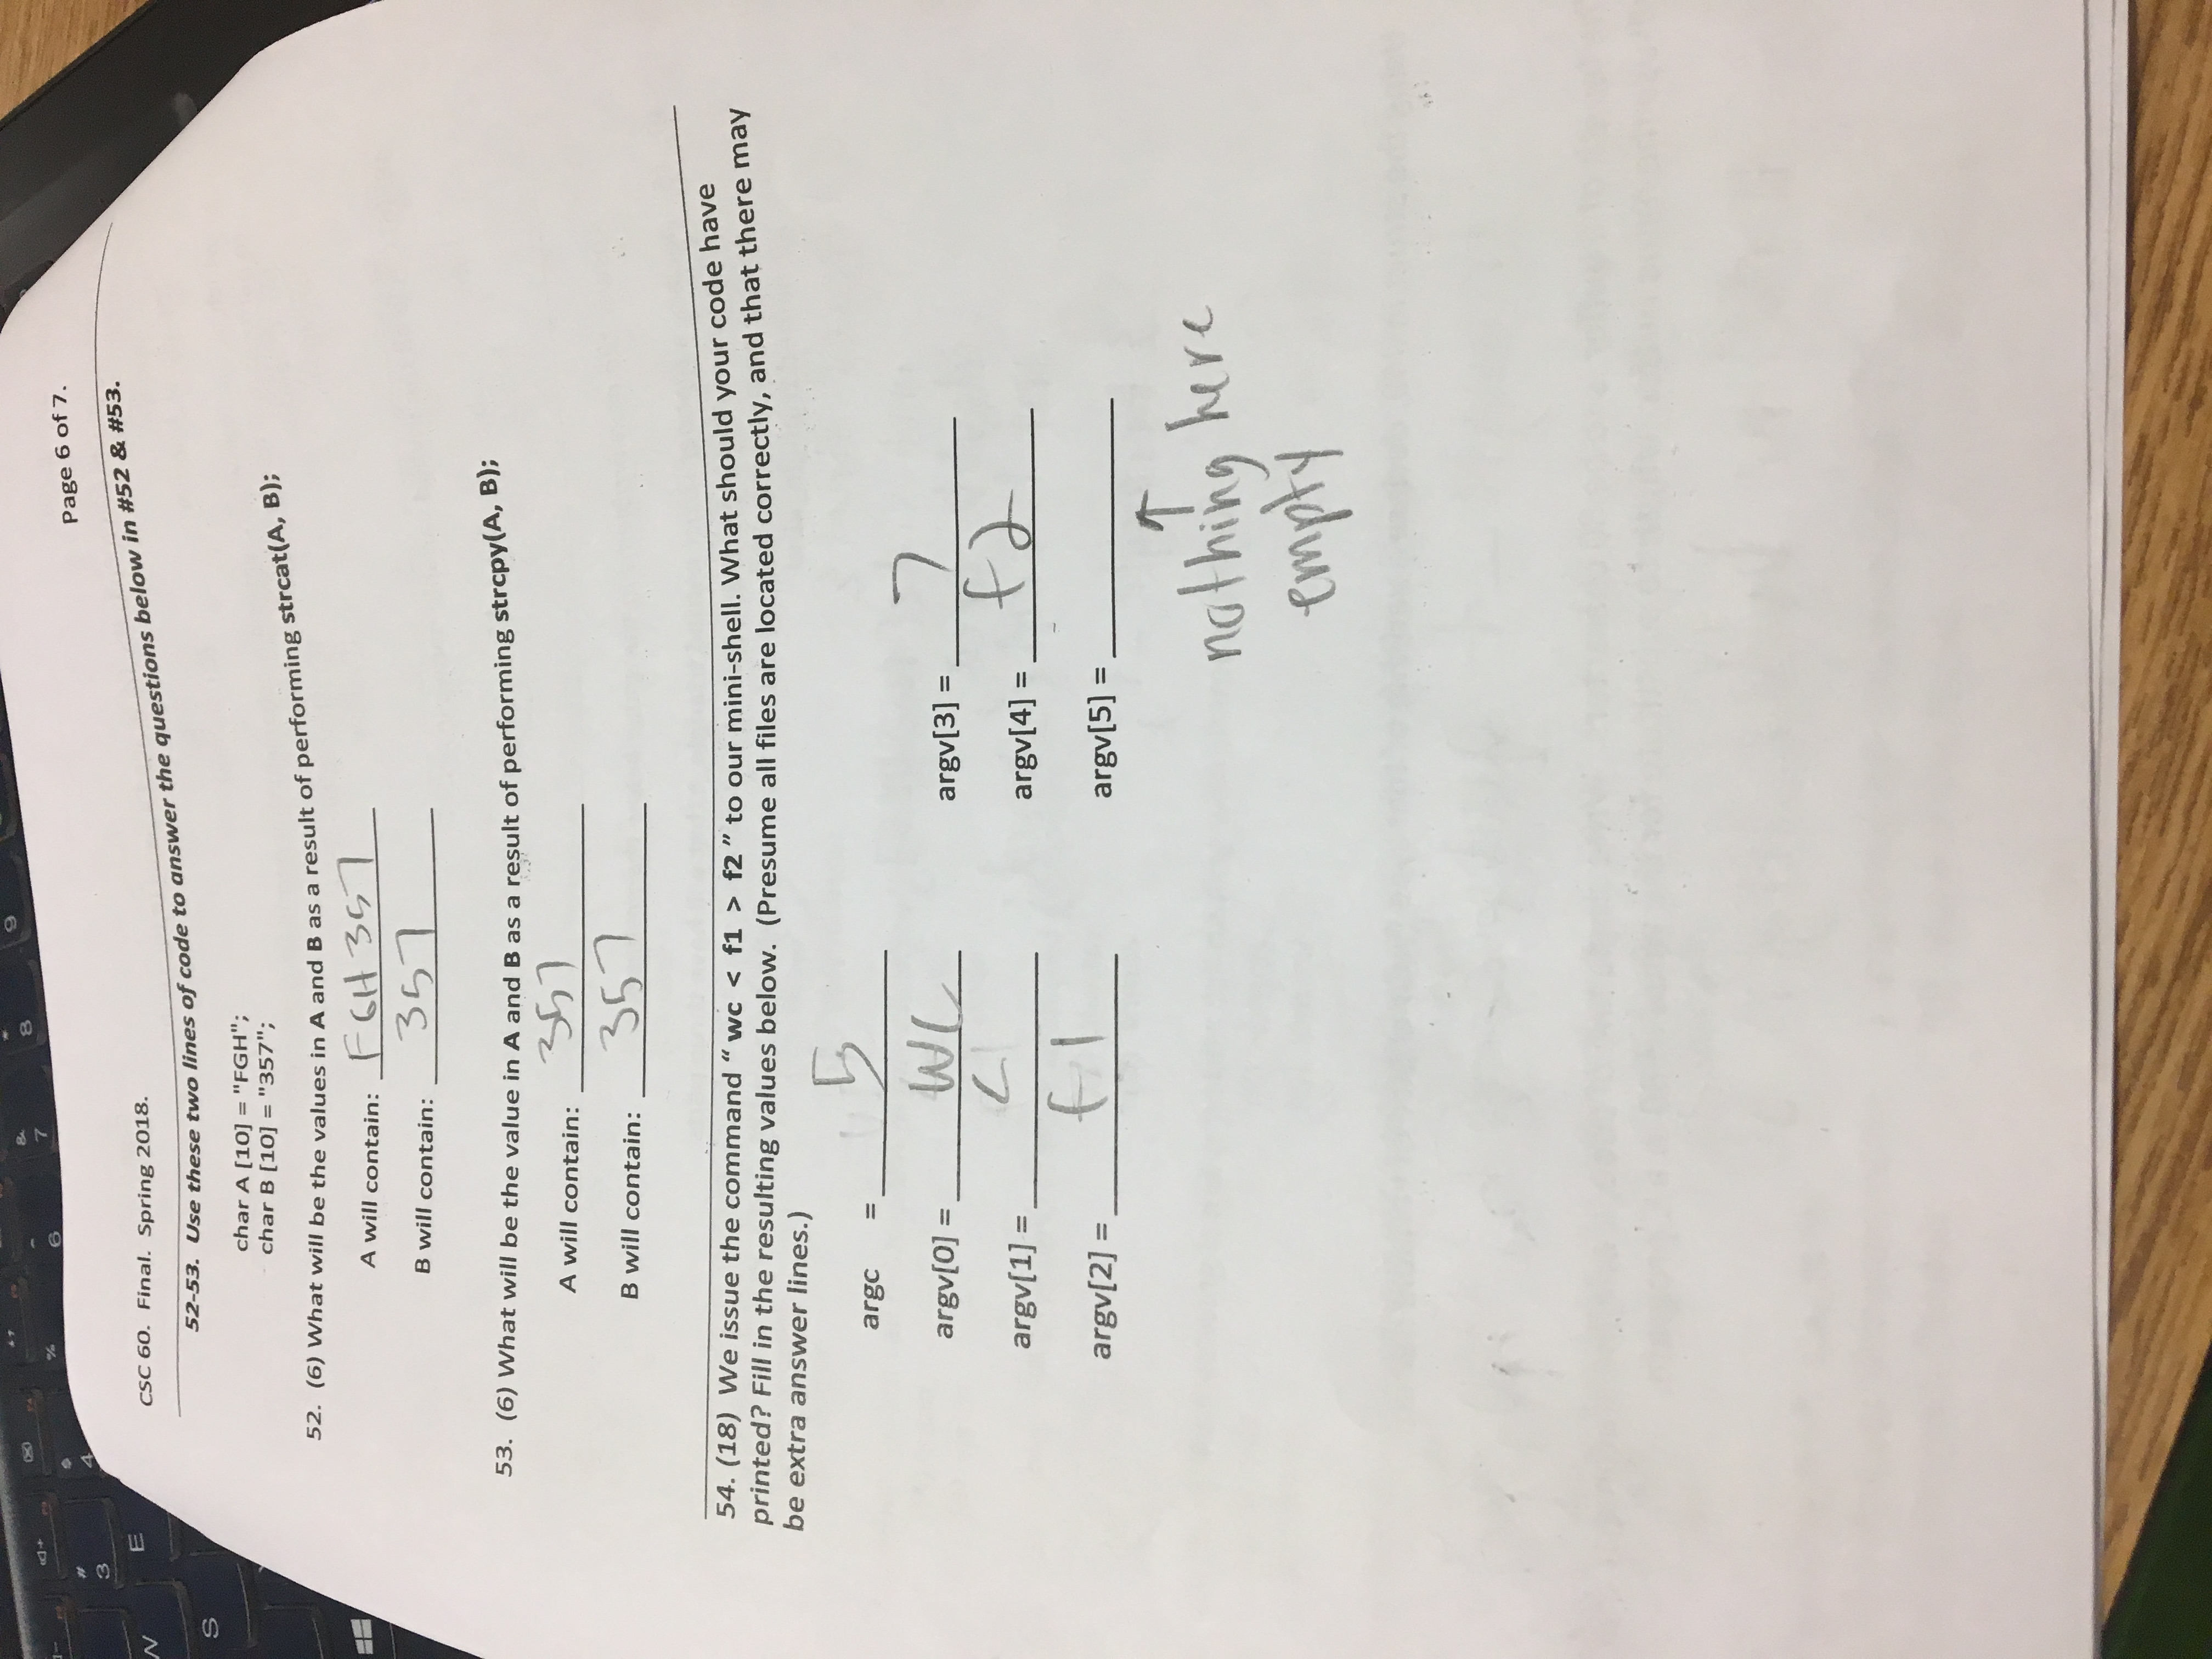 Page 6 of 7.
CSC 60. Final. Spring 2018.
52-53. Use these two lines of code to answer the questions below in #52 & #53.
char A [10] = "FGH";
char B [10] = "357";
52. (6) What will be the values in A and B as a result of performing strcat(A, B);
A will contain: FGH357
B will contain: 357
53. (6) What will be the value in A and B as a result of performing strcpy(A, B);
A will contain: 357
B will contain: 357
54. (18) We issue the command “ wc < f1 > f2 ” to our mini-shell. What should your code have
printed? Fill in the resulting values below. (Presume all files are located correctly, and that there may
be extra answer lines.)
argc = 5
argv[0] = wc
argv[3] = >
argv[1] = <
argv[4] = f2
argv[2] = f1
argv[5] =
↑
nothing here
empty